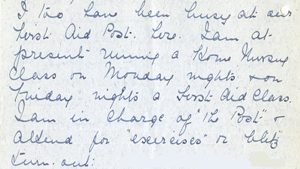 I too have been busy at our
First Aid Post. Lire. I am at
present running a Home Nursing
Class on Monday nights & on
Friday nights a First Aid Class.
I am in charge of "the Post" &
attend for "exercises" or blitz
turn-out.